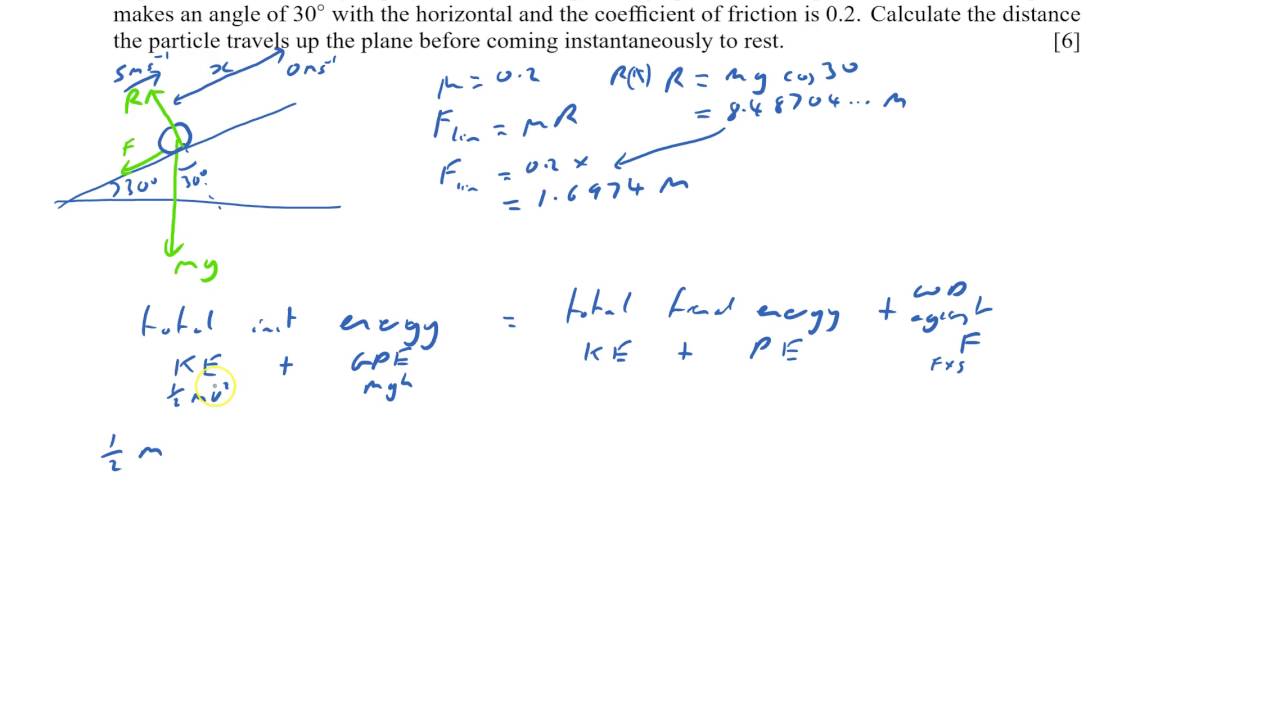 makes an angle of 30° with the horizontal and the coefficient of friction is 0.2. Calculate the distance
the particle travels up the plane before coming instantaneously to rest. [6]
5ms⁻¹ x 0ms⁻¹
R
F
30° 30°
mg
μ = 0.2
F lim = μR
F lim = 0.2 ×
= 1.6974 m
R(↖) R = mg cos 30
= 8.48704... m
total init energy = total final energy + WD against F
KE + GPE KE + PE F×s
½mv² mgh
½ m